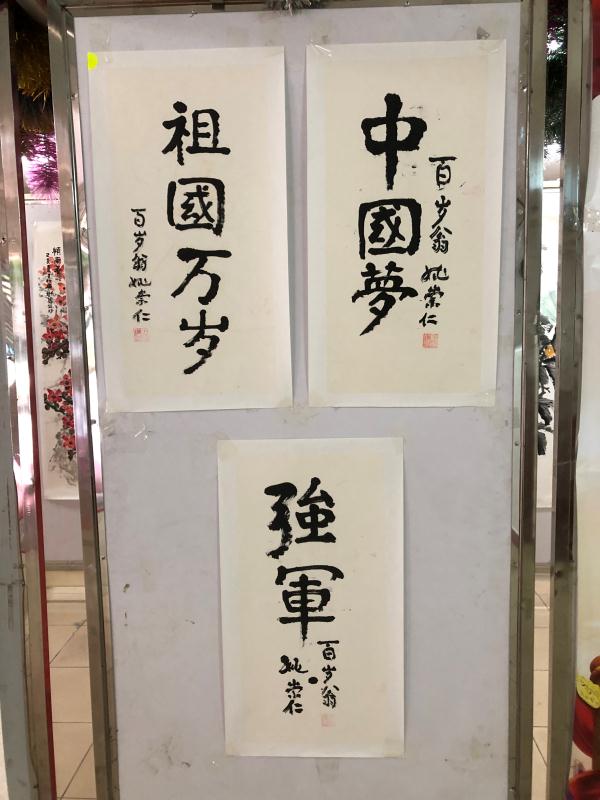 祖國万岁
百岁翁姚崇仁
中國夢
百岁翁姚崇仁
強軍
百岁翁
姚崇仁